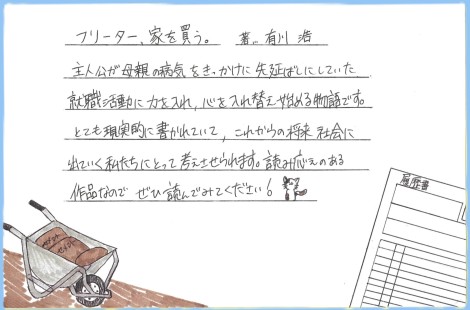 フリーター、家を買う。 著.. 有川 浩
主人公が母親の病気をきっかけに先延ばしにしていた
就職活動に力を入れ、心を入れ替え始める物語です。
とても現実的に書かれていて、これからの将来社会に
出ていく私たちにとって考えさせられます。読み応えのある
作品なので ぜひ読んでみてください!
履歴書